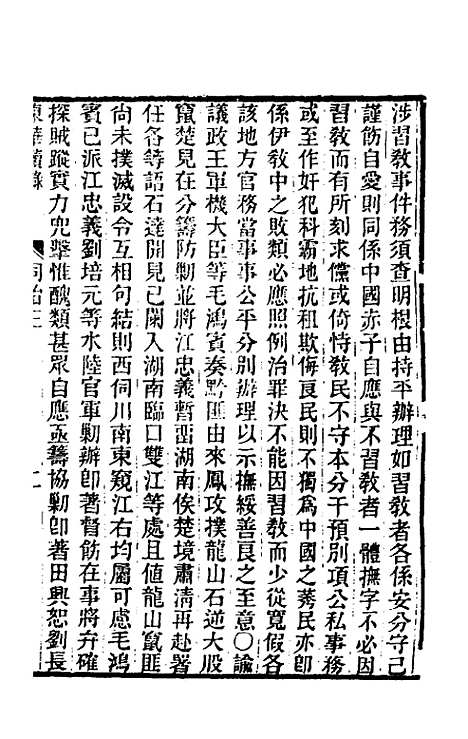 涉習敎事件務須查明根由持平辦理如習敎者各係安分守己
謹飭自愛則同係中國赤子自應與不習敎者一體撫字不必因
習敎而有所刻求儻或倚恃敎民不守本分干預別項公私事務
或至作奸犯科霸地抗租欺侮良民則不獨爲中國之莠民亦卽
係伊敎中之敗類必應照例治罪決不能因習敎而少從寬假各
該地方官務當事事公平分別辦理以示撫綏善良之至意○諭
議政王軍機大臣等毛鴻賓奏黔匪由來鳳攻撲龍山石逆大股
竄楚見在分籌防勦並將江忠義暫畱湖南俟楚境肅淸再赴署
任各等語石達開見已闌入湖南臨口雙江等處且値龍山竄匪
尚未撲滅設令互相句結則西伺川南東窺江右均屬可慮毛鴻
賓已派江忠義劉培元等水陸官軍勦辦卽著督飭在事將弁確
探賊蹤實力兜擊惟醜類甚眾自應亟籌協勦卽著田興恕劉長
東華續錄 同治三